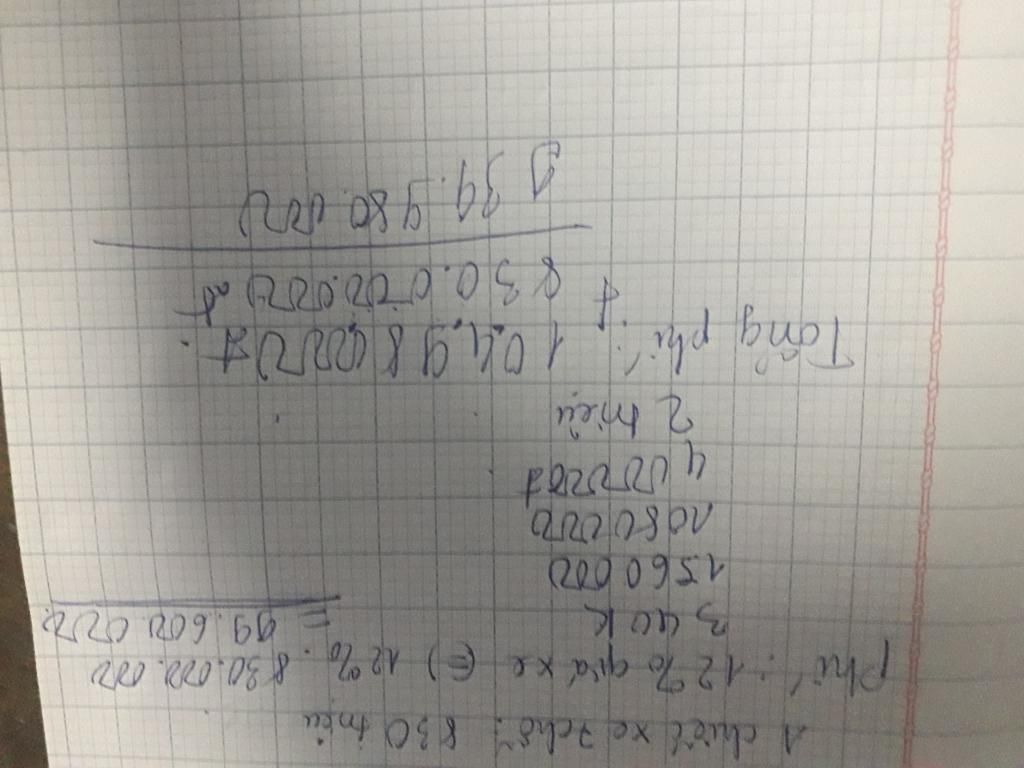 1 chiếc xe 7 chỗ: 830 triệu
Phí: 12% giá xe (=) 12%. 830.000.000
= 99.600.000.
340k
1560000
1080000
400000đ
2 triệu
Tổng phí: 104.98000đ.
+ 830.000.000đ
934.980.000